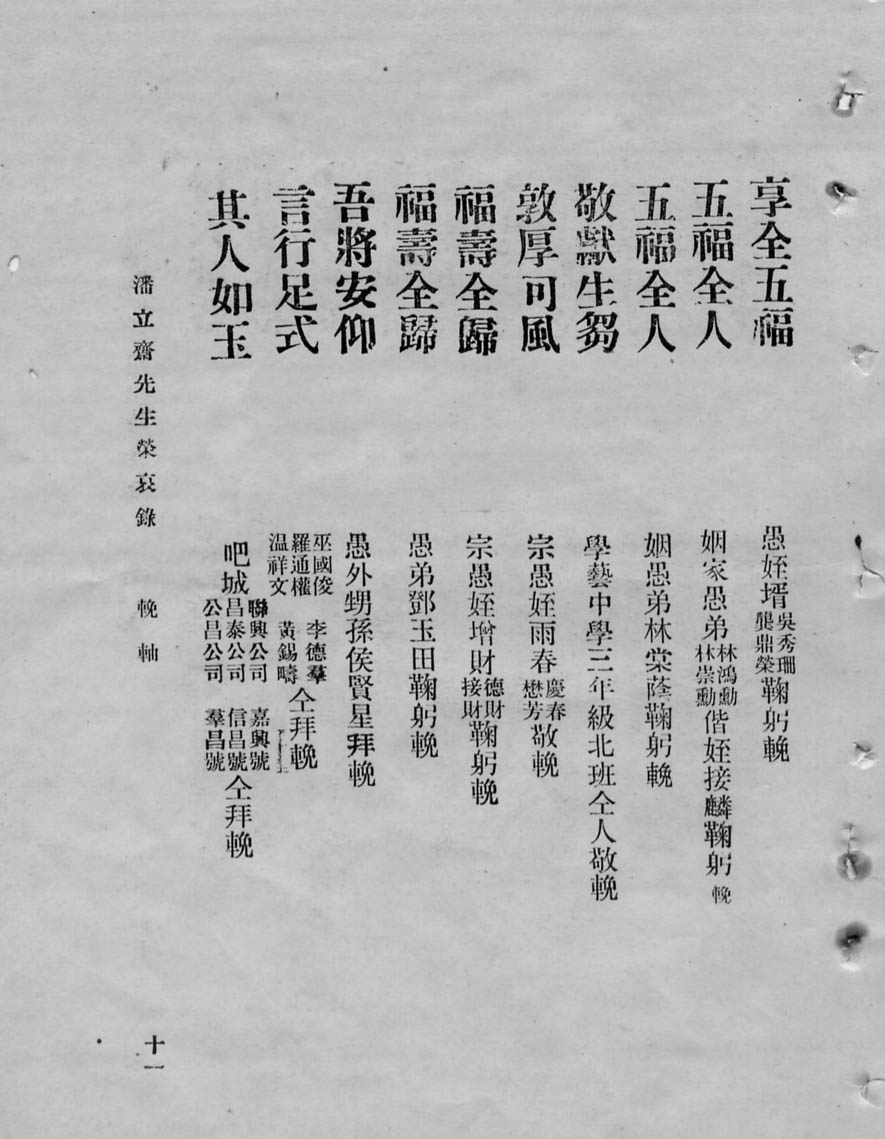 享全五福　愚姪壻吳秀珊龔鼎榮鞠躬輓
五福全人　姻家愚弟林鴻勳林崇勳偕姪接麟鞠躬輓
五福全人　姻愚弟林棠蔭鞠躬輓
敬獻生芻　學藝中學三年級北班仝人敬輓
敦厚可風　宗愚姪雨春慶春懋芳敬輓
福壽全歸　宗愚姪增財德財接財鞠躬輓
福壽全歸　愚弟鄧玉田鞠躬輓
吾將安仰　愚外甥孫侯賢星拜輓
言行足式　巫國俊羅通權温祥文　李德羣黃錫疇仝拜輓
其人如玉　吧城聯興公司昌泰公司公昌公司　嘉興號信昌號羣昌號仝拜輓
潘立齋先生榮哀錄　輓軸　十一